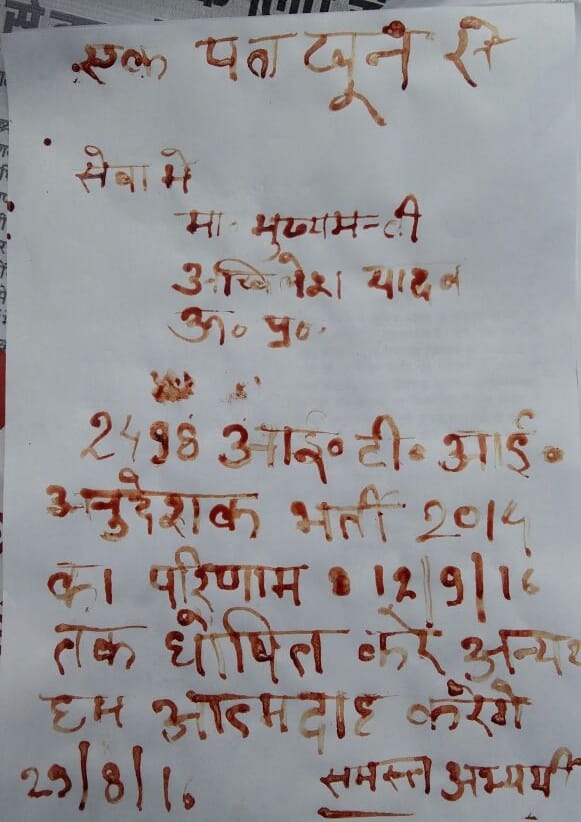 एक पत्र खून से
सेवा में
मा. मुख्यमन्त्री
अखिलेश यादव
उ० प्र०
2498 आई० टी० आई०
अनुदेशक भर्ती 2014
का परिणाम 12/9/16
तक घोषित करें अन्यथ
हम आत्मदाह करेंगे
29/8/16
समस्त अभ्यर्थी